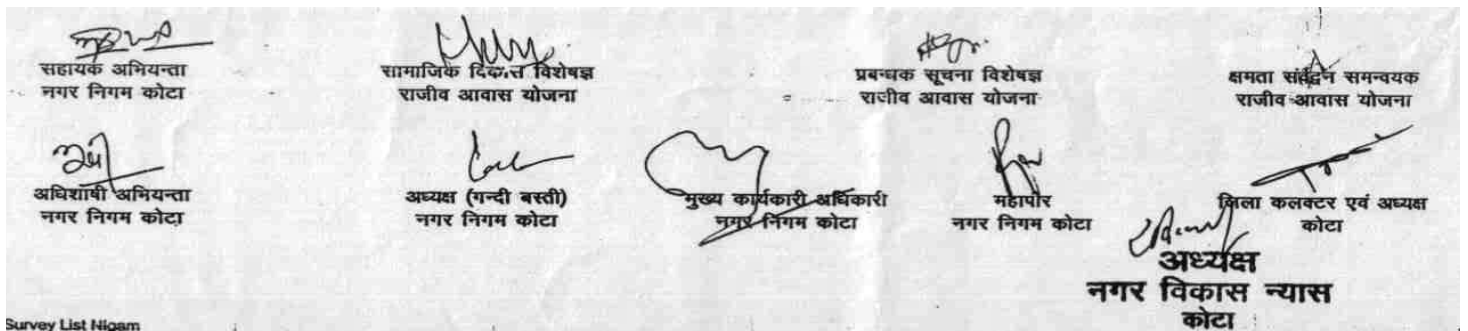 सहायक अभियन्ता
नगर निगम कोटा
सामाजिक विकास विशेषज्ञ
राजीव आवास योजना
प्रबन्धक सूचना विशेषज्ञ
राजीव आवास योजना
क्षमता संर्वद्वन समन्वयक
राजीव आवास योजना
अधिशाषी अभियन्ता
नगर निगम कोटा
अध्यक्ष (गन्दी बस्ती)
नगर निगम कोटा
मुख्य कार्यकारी अधिकारी
नगर निगम कोटा
महापौर
नगर निगम कोटा
जिला कलक्टर एवं अध्यक्ष
कोटा
अध्यक्ष
नगर विकास न्यास
कोटा
Survey List Nigam